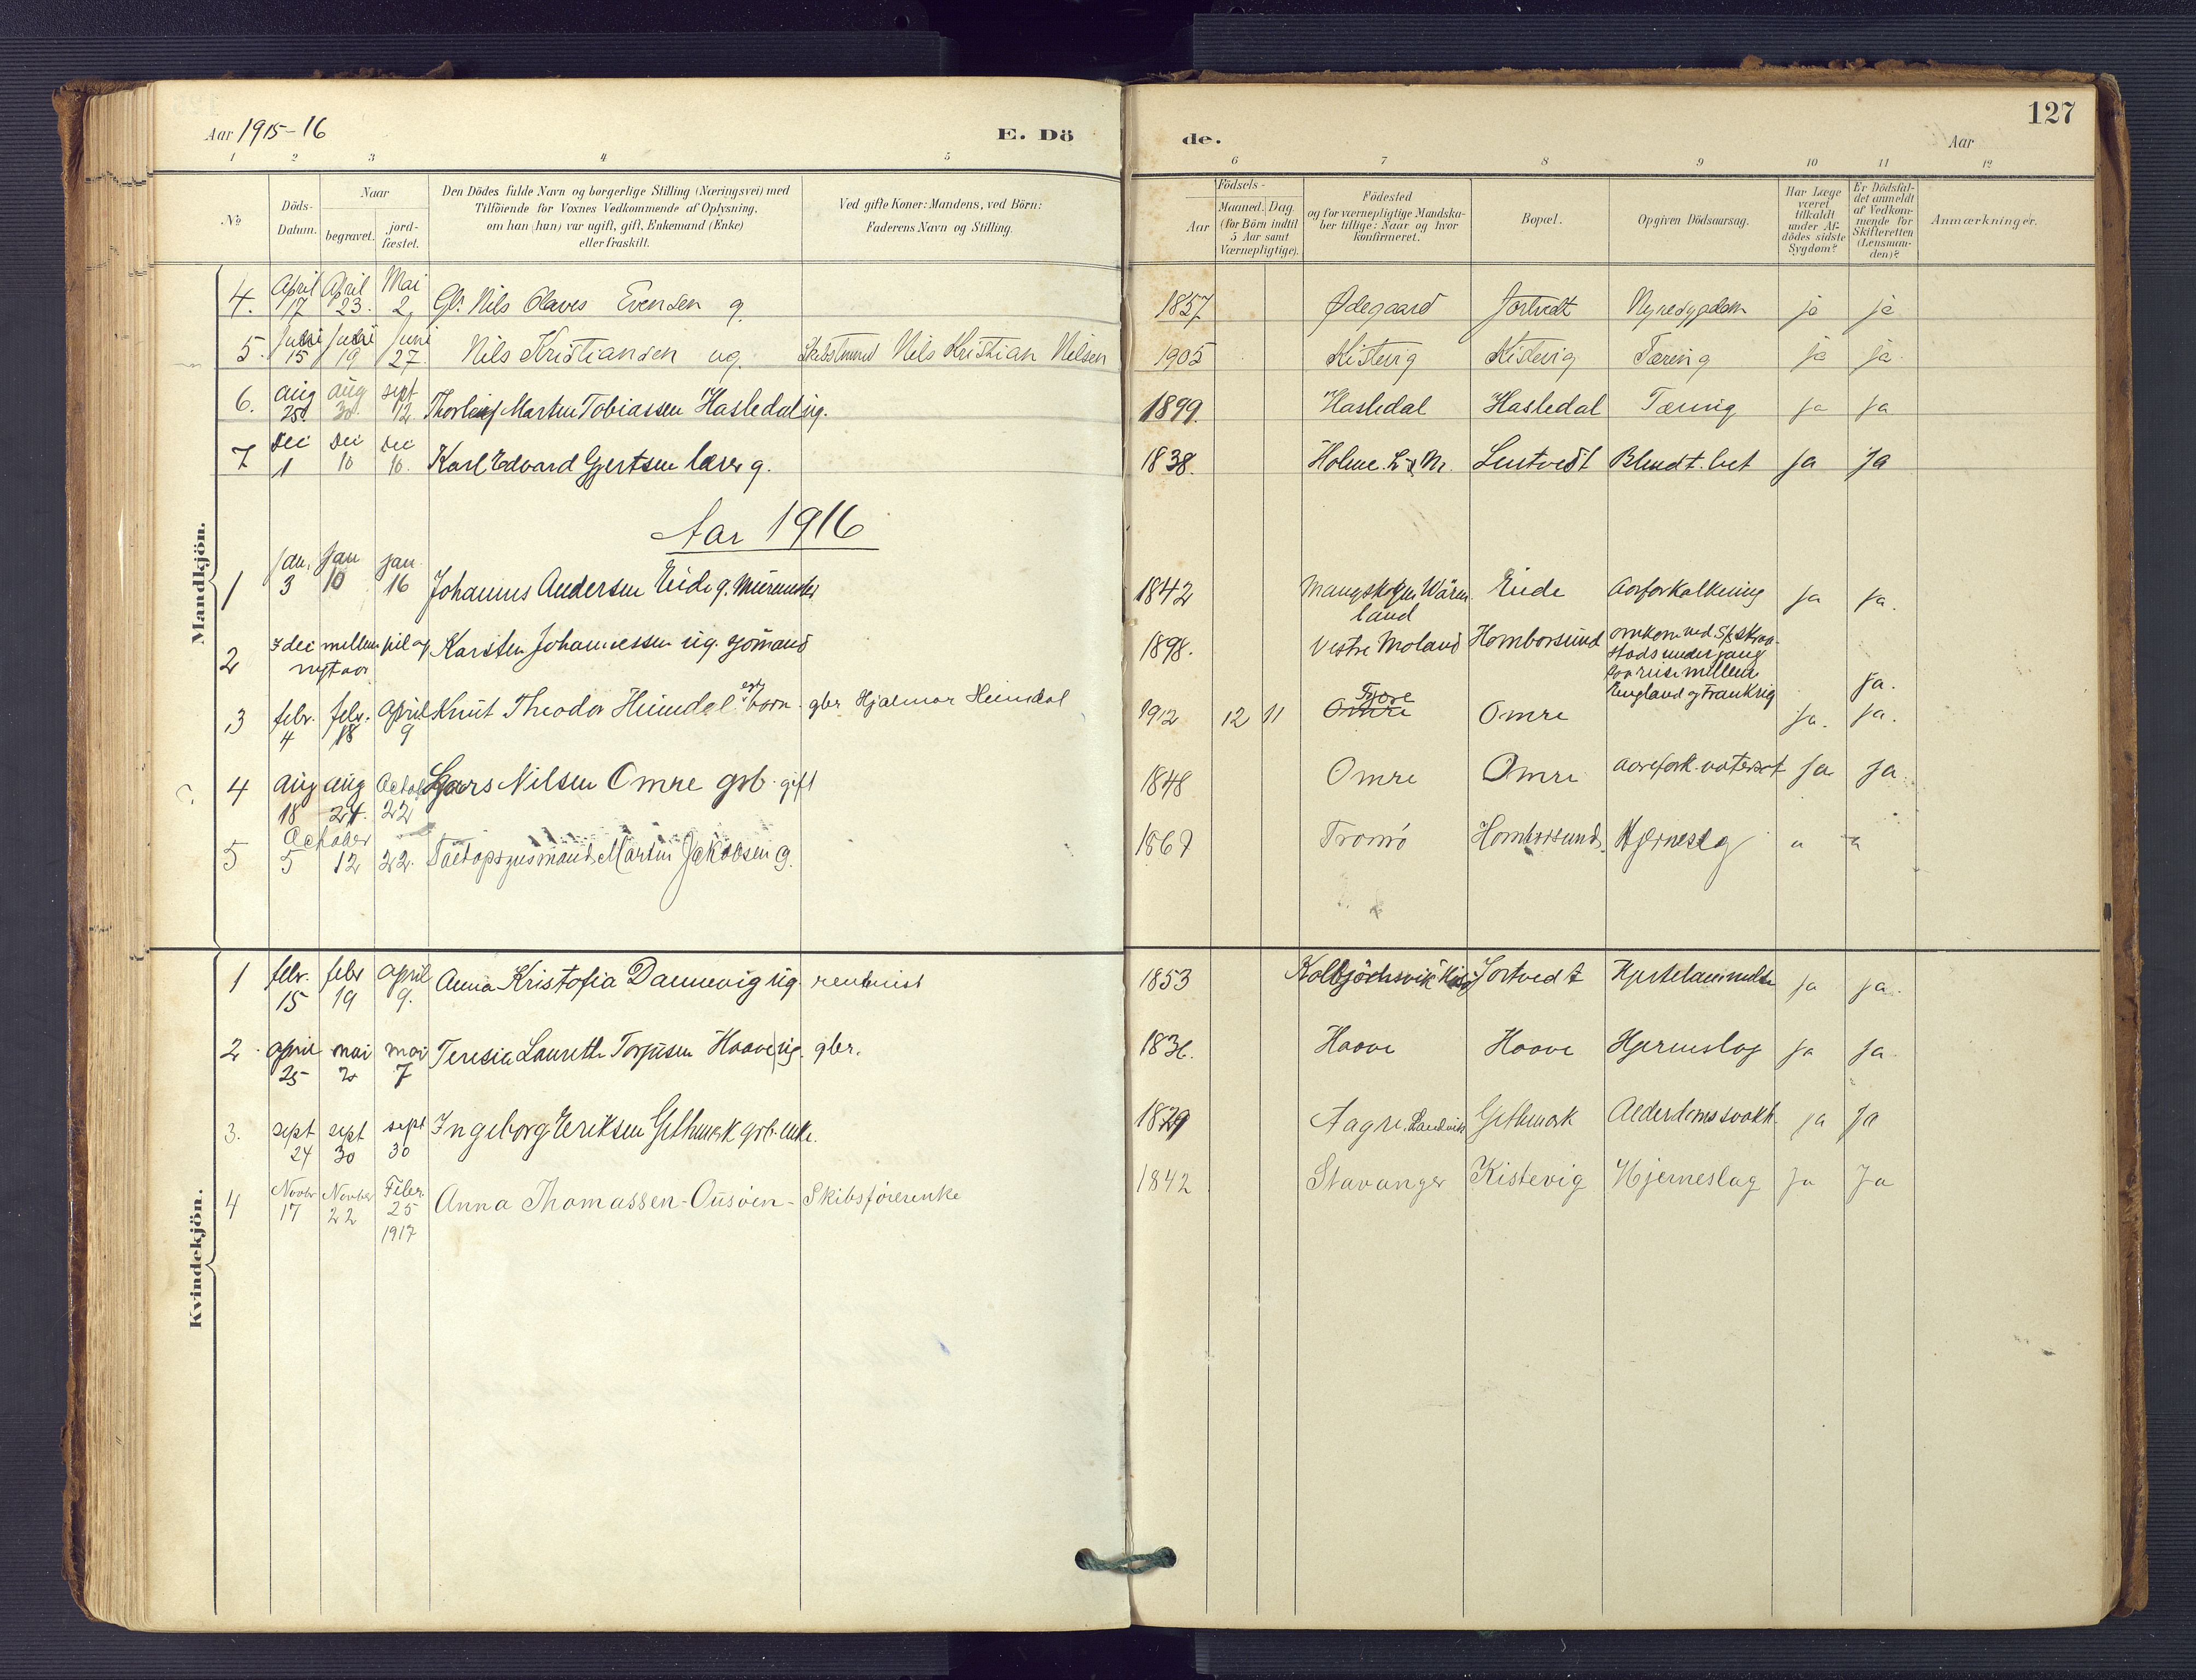 127
Aar 1915-16 E. Dö de. Aar
1 2 3 4 5 6 7 8 9 10 11 12
No Döds-Datum. Naar begravet. jord-fæstet. Den Dödes fulde Navn og borgerlige Stilling (Næringsvei) med Tilföiende for Voxnes Vedkommende af Oplysning, om han (hun) var ugift, gift, Enkemand (Enke) eller fraskilt. Ved gifte Koner: Mandens, ved Börn: Faderens Navn og Stilling. Aar Födsels- Maaned. Dag. (for Börn indtil 5 Aar samt Værnepligtige). Födested og for værnepligtige Mandskaber tillige: Naar og hvor konfirmeret. Bopæl. Opgiven Dödsaarsag. Har Læge været tilkaldt under Afdödes sidste Sygdom? Er Dödsfaldet anmeldt af Vedkommende for Skifteretten (Lensmanden)? Anmærkninger.
Mandkjön.
4. April 17 April 23. Mai 2. Gbr. Nils Olaves Evensen g. 1857 Ødegaard Jortvedt Nyresygdom ja ja
5. Juni 15 Juni 19 Juni 27. Nils Kristiansen ug. Skibstmmd Nils Kristian Nilsen 1905 Kistevig Kistevig Tæring ja ja.
6. aug 25. aug 30. sept 12 Thorleif Martin Tobiassen Hasledal ug. 1899. Hasledal Hasledal Tæring ja ja
7 Dec 1 Dec 10 Dec 10. Karl Edvard Gjertsen lærer g. 1838. Holme. L. & M. Lintvedt Blindt.bet ja ja
Aar 1916
1 jan. 3 jan 10 jan. 16 Johannes Andersen Eide g. murmester 1842 Mangskogen Wärmland Eide Aarforkalkning ja ja.
2 I dec mellem jul og nytaar Karsten Johannessen ug. sjömand 1898. Vestre Moland Homborsund omkom ved S/S Skraastads undergang paa reise mellem England og Frankrig ja.
3 febr. 4 febr. 18 april 9 Knut Theodor Heimdal egt. barn. gbr Hjalmar Heimdal 1912 12 11 Omre Tjore Omre ja. ja.
4 aug 18 aug 24. October 22 Lars Nilsen Omre grb. gift 1848 Omre Omre aarefork. vatersot ja ja.
5 October 5 12 22. Martin Jakobsen g. 1867 Tromö Homborsund. Hjerneslag " "
Kvindekjön.
1 febr. 15 febr 19 april 9. Anna Kristofia Dannevig ug. rentenist 1853 Kolbjörnsvik Hisö Jortvedt Hjertelammelse ja ja.
2 april 25 mai 2 mai 7 Teresia Laurethe Torjusen Haave ug. gbr. 1836. Haave Haave Hjerneslag ja ja.
3. sept 24 sept 30 sept 30 Ingeborg Eriksen Gethmark grb. enke. 1829 Aagre. Landvik Gethmark Alderdomssvakh. ja ja
4 Novbr 17 Novber 22 Feber 25 1917 Anna Thomassen-Ousöen- Skibsförerenke 1842 Stavanger Kistevig Hjerneslag Ja Ja